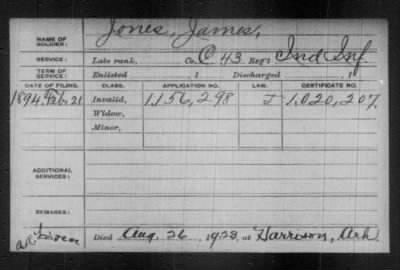 NAME OF SOLDIER: Jones, James,
SERVICE: Late rank, Co. C 43 Reg't Ind Inf.
TERM OF SERVICE: Enlisted , 1 Discharged , 1
DATE OF FILING. CLASS. APPLICATION NO. LAW. CERTIFICATE NO.
1894. Feb. 21 Invalid, 1,156,298 J 1,020,207.
Widow,
Minor,
ADDITIONAL SERVICES:
REMARKS:
Died Aug. 26, 1923, at Harrison, Ark.